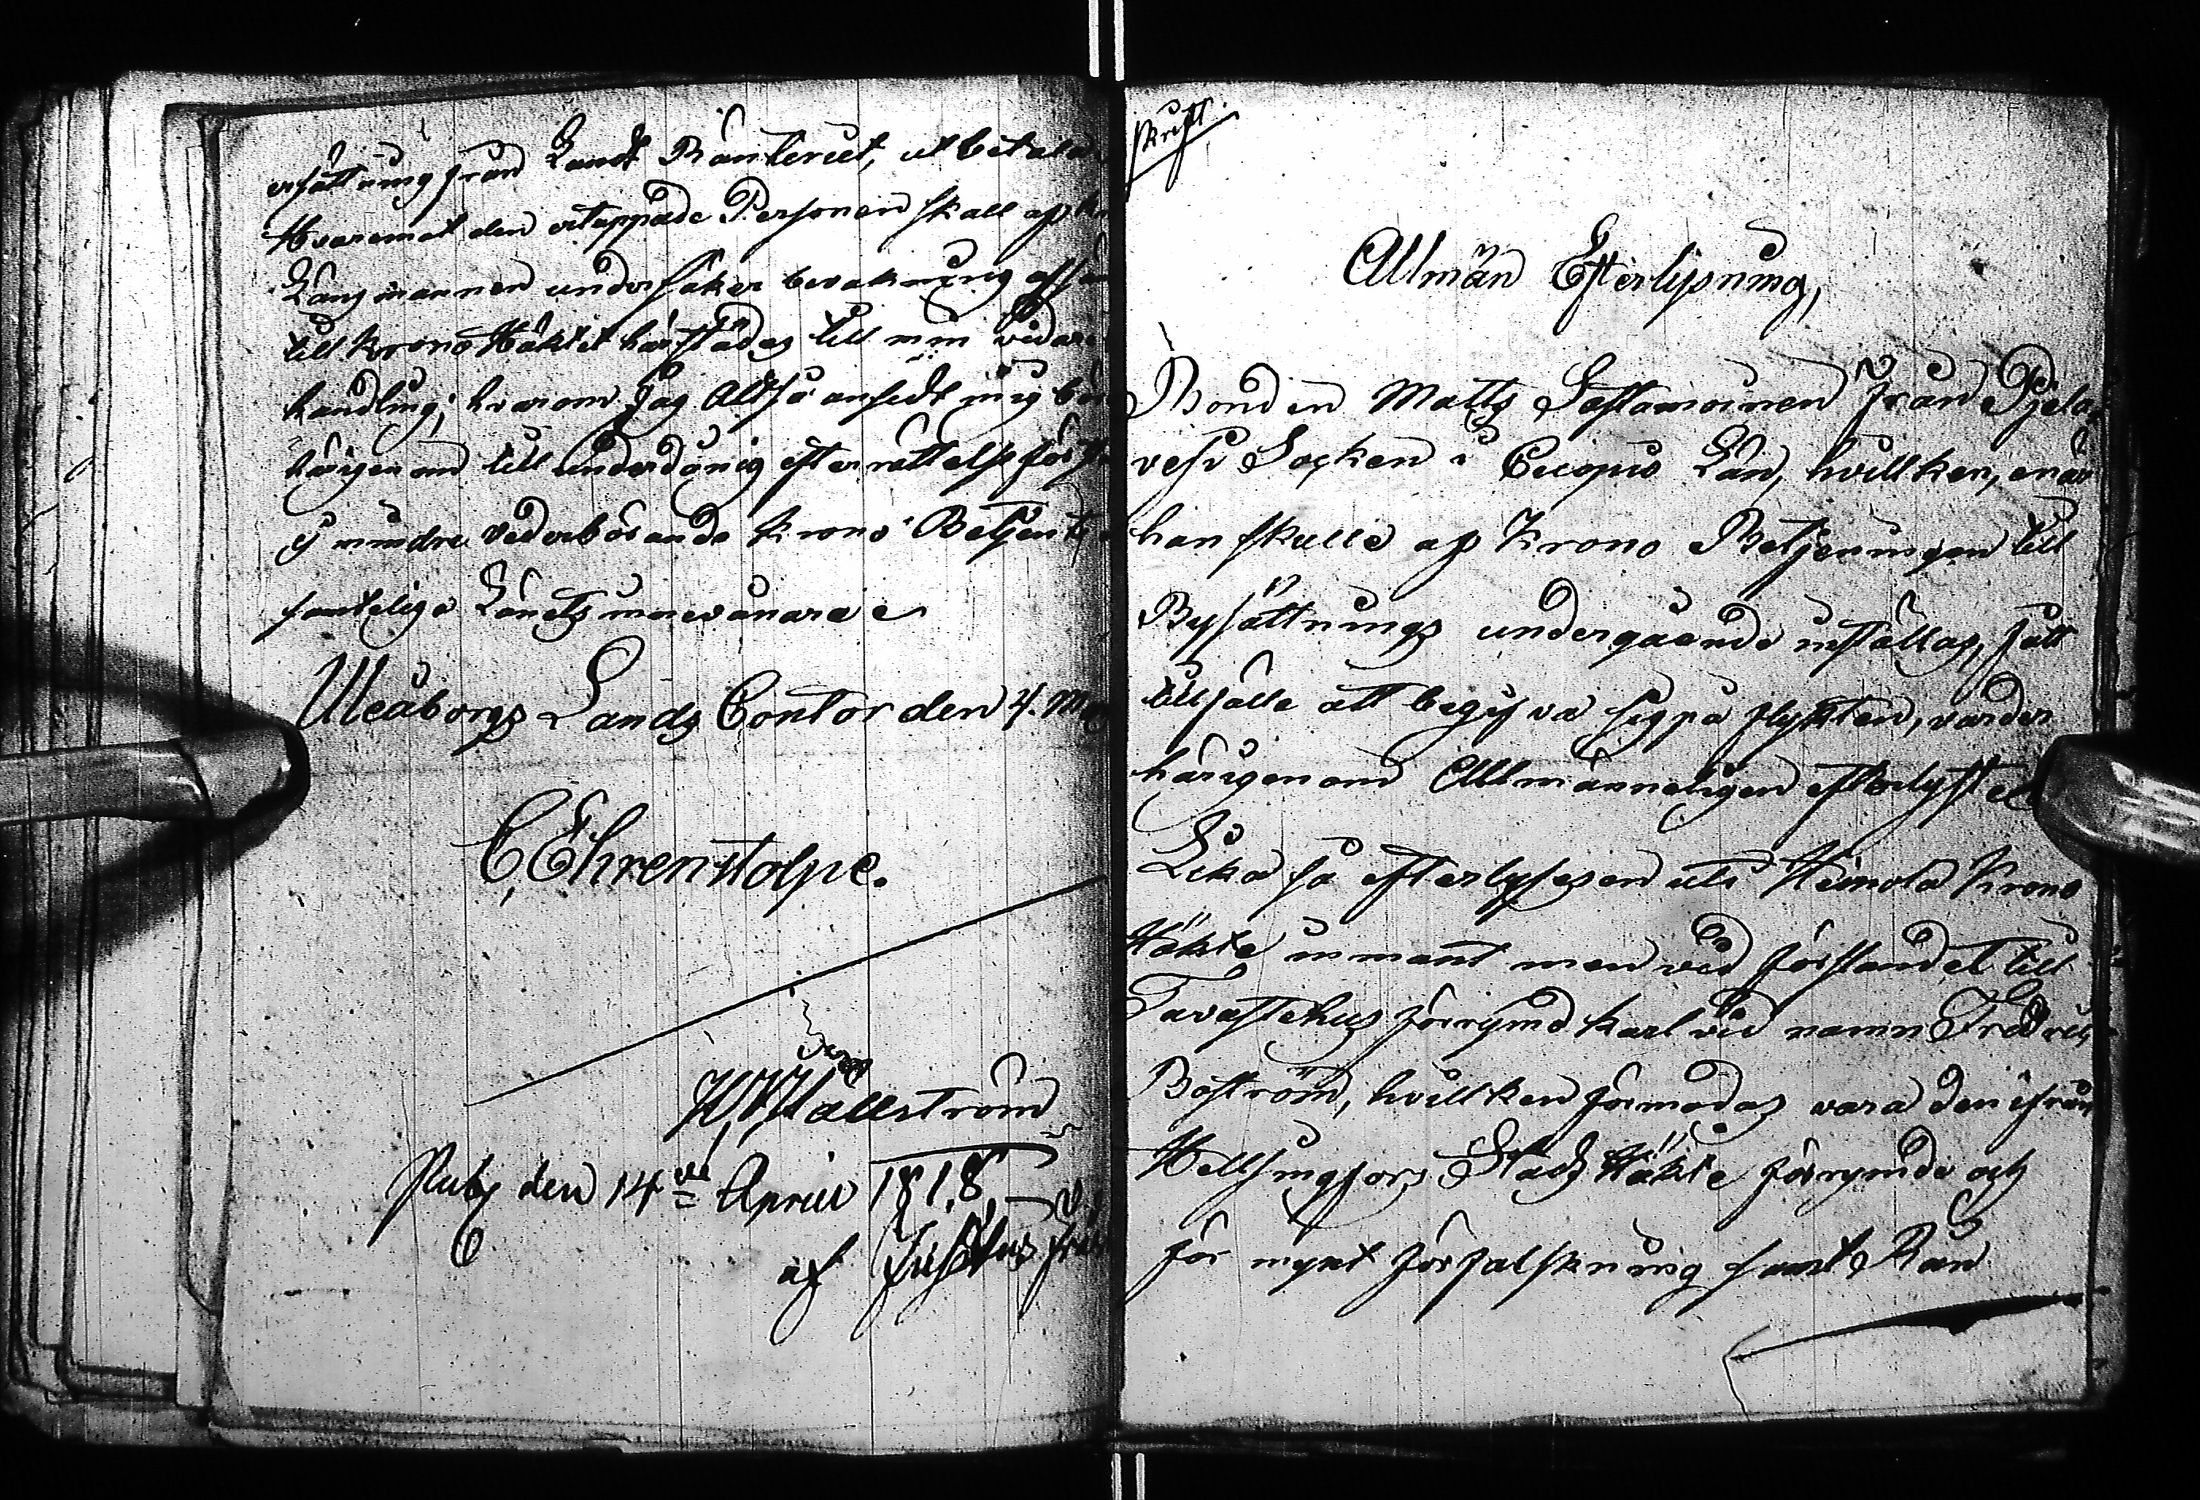 ersättning från Landt Ränteriet, utbetala
Hvaremot den ertappade Personen skall af
Länsmannen under säker bevakning afsän
till Krono Häktet härstädes till min vidare
handling; hvarom Jag Altså ansedt mig bö
härigenom till underdånig efterrättelse för
ej mindre vederbörande Krono Betjente
samtelige Länets innevånare
Uleåborgs Lands Contor den 4. M
C. Ehrenstolpe.
H. W. Hällström
Publ den 14de April 1818,
af
skrift.
Allmän Efterlysning,
Bonden Matts Sastamoinen från Pjela
vesi Socken i Cuopio Län, hvilken, enär
han skulle af Krono Betjeningen till
Bysättnings undergående inställas, fått
tillfälle att begifva sig på flykten, varder
härigenom Allmänneligen efterlyst
Lika så efterlyses en uti Heinola Krono
Häkte inmant men vid förslandet till
Tavastehus förrymd karl vid namn Fredric
Boström, hvilken förmodas vara den ifrån
Hellsingfors Stads Häkte förrymde och
för mynt förfalskning samt Rån